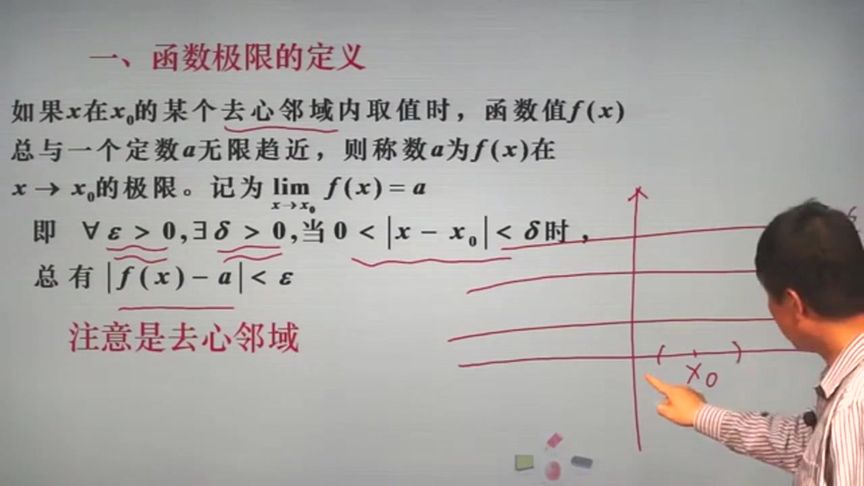 一、函数极限的定义
如果x在x₀的某个去心邻域内取值时，函数值f(x)
总与一个定数a无限趋近，则称数a为f(x)在
x → x₀的极限。记为 lim f(x) = a
x→x₀
即 ∀ε > 0,∃δ > 0,当 0 < |x − x₀| < δ时，
总有|f(x) − a| < ε
注意是去心邻域
( )
x₀